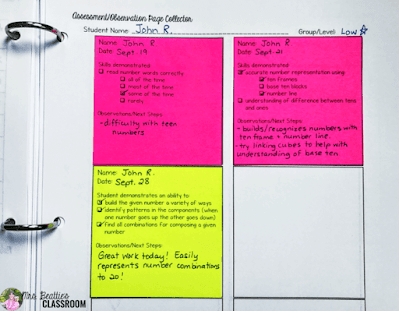 Assessment/Observation Page Collector
Student Name: John R. Group/Level: Low
Name: John R.
Date: Sept. 19
Skills demonstrated:
read number words correctly
all of the time
most of the time
some of the time
rarely
Observations/Next Steps:
- difficulty with teen
numbers
Name: John R
Date: Sept. 21
Skills demonstrated:
accurate number representation using:
ten frames
base ten blocks
number line
understanding of difference between tens
and ones
Observations/Next Steps:
- builds/recognizes numbers with
ten frame + number line.
- try linking cubes to help with
understanding of base ten
Name: John R.
Date: Sept. 28
Student demonstrated an ability to:
build the given number a variety of ways
identify patterns in the components (when
one number goes up the other goes down)
find all combinations for composing a given
number
Observations/Next Steps:
Great work today! Easily
represents number combinations
to 20!
Mrs. Beattie's
CLASSROOM